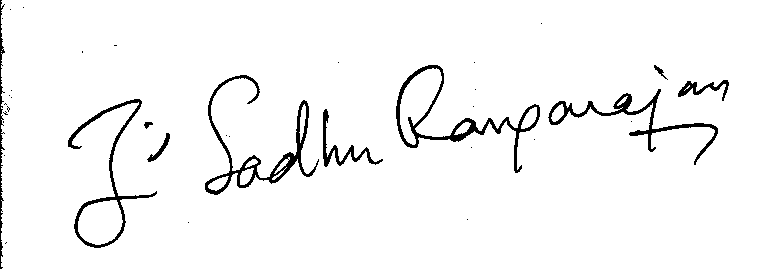 Sadhu Rangarajan